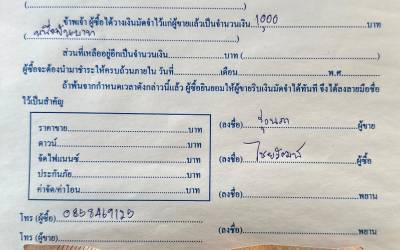 ข้าพเจ้า ผู้ซื้อได้วางเงินมัดจำไว้แก่ผู้ขายแล้วเป็นจำนวนเงิน 1,000 บาท
(หนึ่งพันบาท)
ส่วนที่เหลืออยู่อีกเป็นจำนวนเงิน บาท
( )
ผู้ซื้อจะต้องนำมาชำระให้ครบถ้วนภายใน วันที่ เดือน พ.ศ.
ถ้าพ้นจากกำหนดเวลาดังกล่าวนี้แล้ว ผู้ซื้อยินยอมให้ผู้ขายริบเงินมัดจำได้ทันที จึงได้ลงลายมือชื่อ
ไว้เป็นสำคัญ
ราคาขาย บาท
ดาวน์ บาท
จัดไฟแนนซ์ บาท
ประกันภัย บาท
ค่าจัด/ค่าโอน บาท
(ลงชื่อ) ผู้ขาย
(ลงชื่อ) ผู้ซื้อ
(ลงชื่อ) พยาน
(ลงชื่อ) พยาน
โทร (ผู้ซื้อ) 0858469125
โทร (ผู้ขาย)